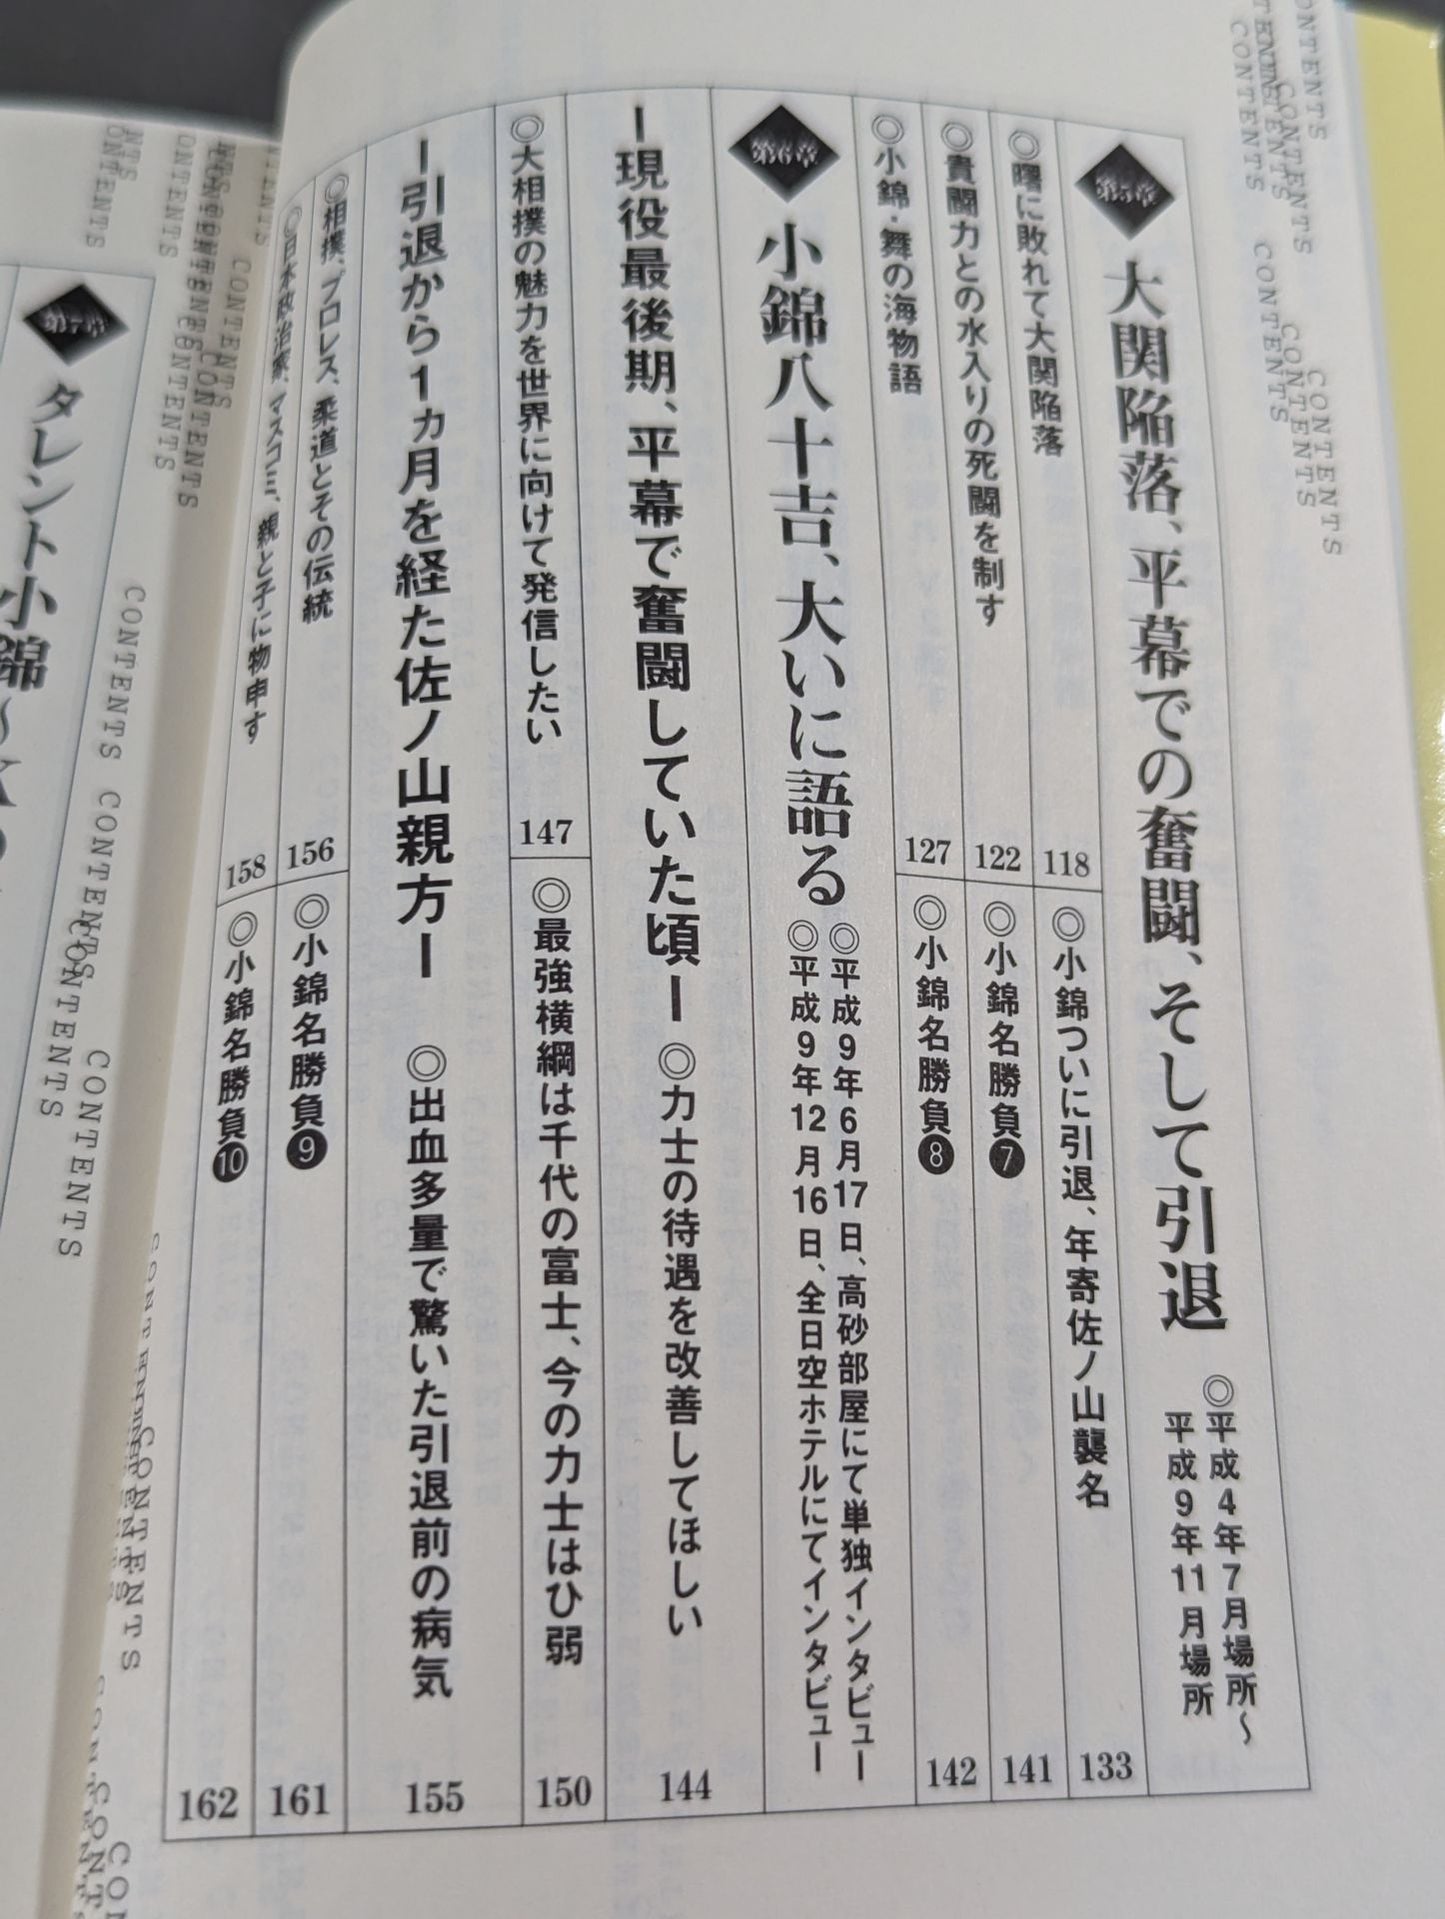 第5章
大関陥落、平幕での奮闘、そして引退
◎平成4年7月場所〜
平成9年11月場所
◎曙に敗れて大関陥落 118
◎小錦ついに引退、年寄佐ノ山襲名 133
◎貴闘力との水入りの死闘を制す 122
◎小錦名勝負❼ 141
◎小錦・舞の海物語 127
◎小錦名勝負❽ 142
第6章
小錦八十吉、大いに語る
◎平成9年6月17日、高砂部屋にて単独インタビュー
◎平成9年12月16日、全日空ホテルにてインタビュー
ー現役最後期、平幕で奮闘していた頃ー
◎力士の待遇を改善してほしい 144
◎大相撲の魅力を世界に向けて発信したい 147
◎最強横綱は千代の富士、今の力士はひ弱 150
ー引退から1カ月を経た佐ノ山親方ー
◎出血多量で驚いた引退前の病気 155
◎相撲、プロレス、柔道とその伝統 156
◎小錦名勝負❾ 161
◎日本政治家、マスコミ、親と子に物申す 158
◎小錦名勝負❿ 162
第7章
タレント小錦〜K
CONTENTS
CONTENTS
CONTENTS
CONTENTS
CONTENTS
CONTENTS
CONTENTS
CONTENTS
CONTENTS
CONTENTS